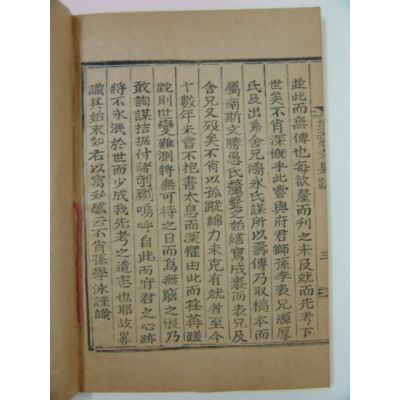 並此而無傳也每欲釐而刊之未及就而先考下
世矣不肖深慨乎此嘗與府君獅孫李袁兄源厚
氏及出系舍兄湯永氏謀所以壽傳乃取槁本而
屬南斯文勝愚氏釐整之始繕寫成袠而袁兄及
舍兄又歿矣不肖以孤蹤綿力未克有就者至今
十數年未嘗不抱書太息而深懼由此而荏苒蹉
跎則世變難測將無可待之日而爲無窮之恨乃
敢詢謀拮据付諸剞劂嗚呼自此府君之心跡
將不永泯於世而少成我先考之遺志也耶故畧
識其始末如右以寓私感云不肖孫學泳謹識
文集跋
三